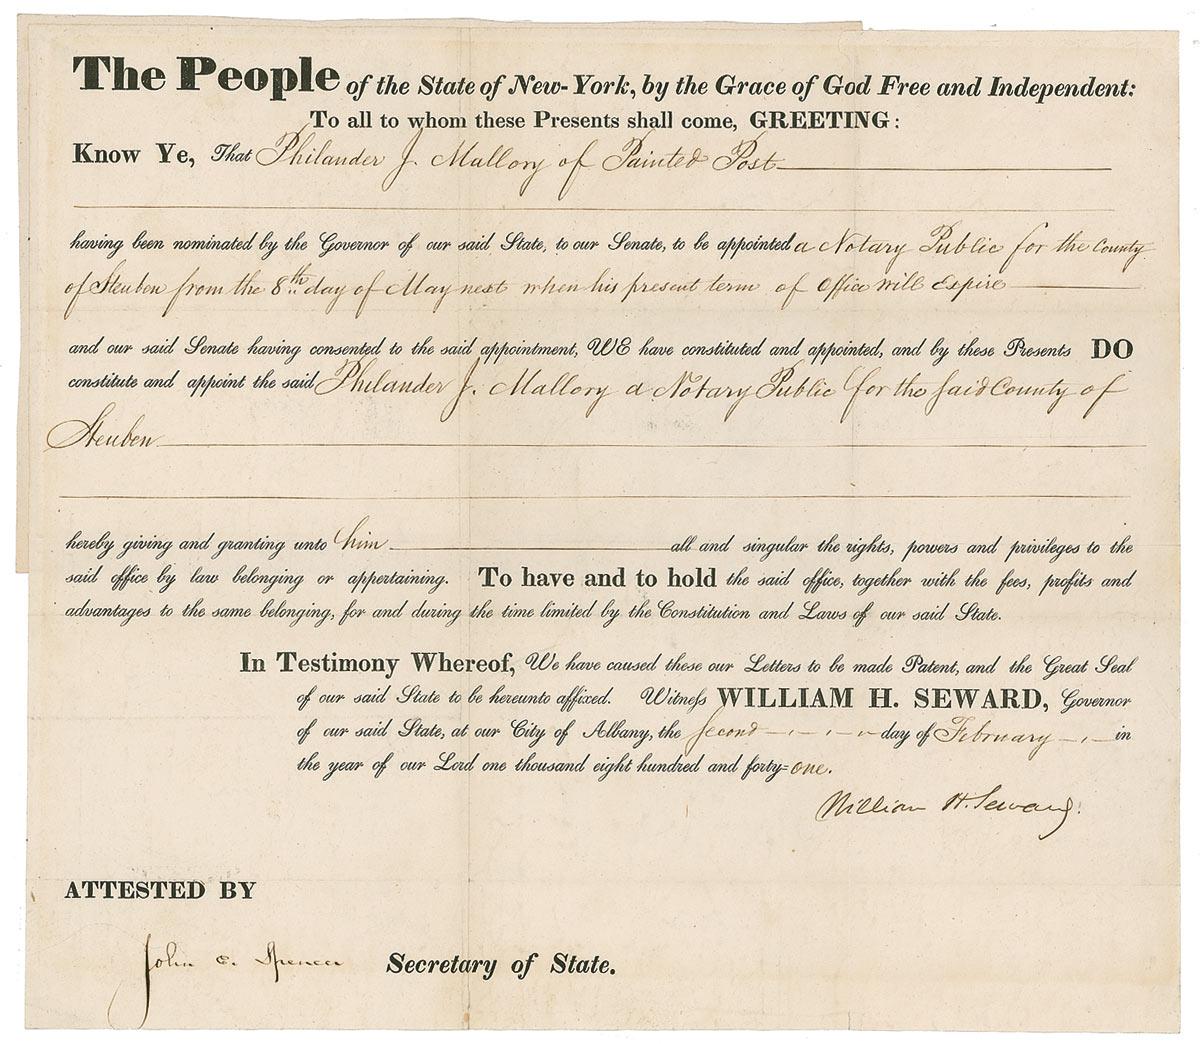 The People of the State of New-York, by the Grace of God Free and Independent:
To all to whom these Presents shall come, GREETING:
Know Ye, That Philander J. Mallory of Painted Post
having been nominated by the Governor of our said State, to our Senate, to be appointed a Notary Public for the County
of Steuben from the 8th day of May next when his present term of office will Expire
and our said Senate having consented to the said appointment, WE have constituted and appointed, and by these Presents DO
constitute and appoint the said Philander J. Mallory a Notary Public for the said County of
Steuben
hereby giving and granting unto him all and singular the rights, powers and privileges to the
said office by law belonging or appertaining. To have and to hold the said office, together with the fees, profits and
advantages to the same belonging, for and during the time limited by the Constitution and Laws of our said State.
In Testimony Whereof, We have caused these our Letters to be made Patent, and the Great Seal
of our said State to be hereunto affixed. Witness WILLIAM H. SEWARD, Governor
of our said State, at our City of Albany, the second day of February in
the year of our Lord one thousand eight hundred and forty-one.
William H. Seward
ATTESTED BY
John C. Spencer Secretary of State.